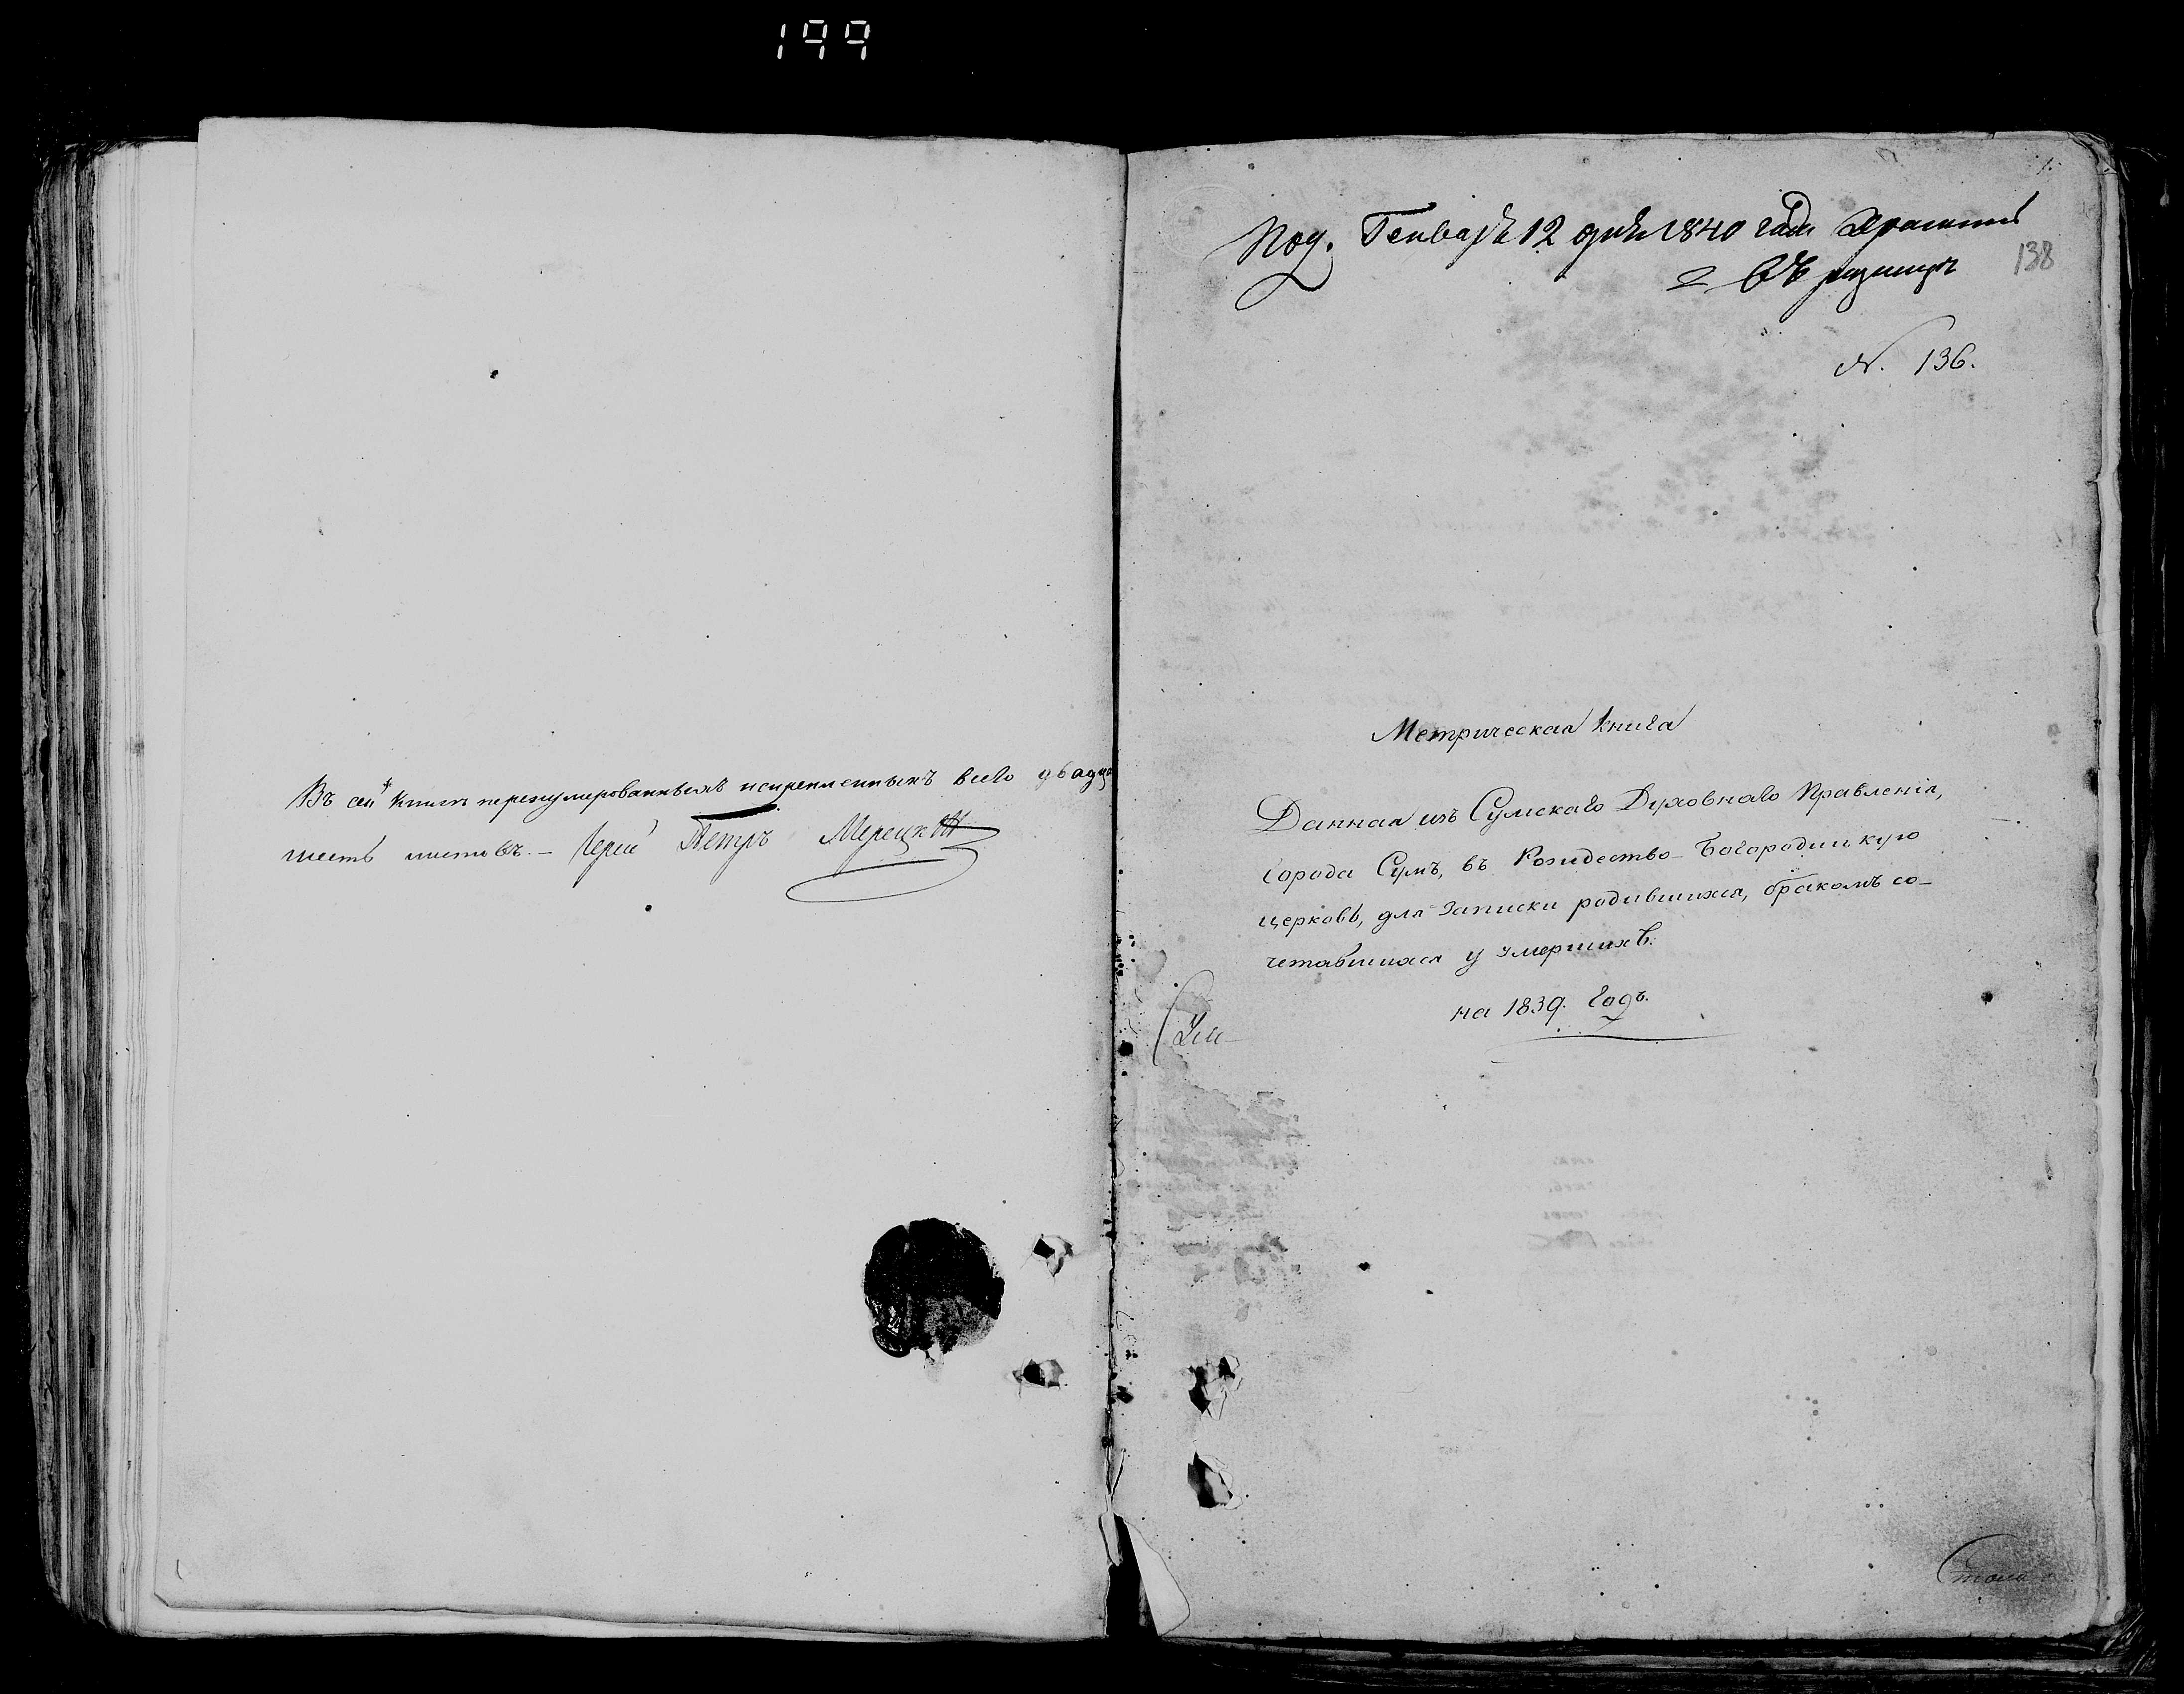 199
Въ сей книгѣ перенумерованныхъ искрепленныхъ всего двадца
шесть листовъ. — Іерей Петръ
1.
Под. Генваря 12 дня 1840 года Хранить
въ ризницѣ
138
N. 136.
Метрическая книга
Данная изъ Сумскаго Духовнаго Правленія,
города Сумъ, въ Рождество-Богородицкую
церковь, для записки родившихся, бракомъ со-
четавшихся у умершихъ.
на 1839. годъ.
Сум-